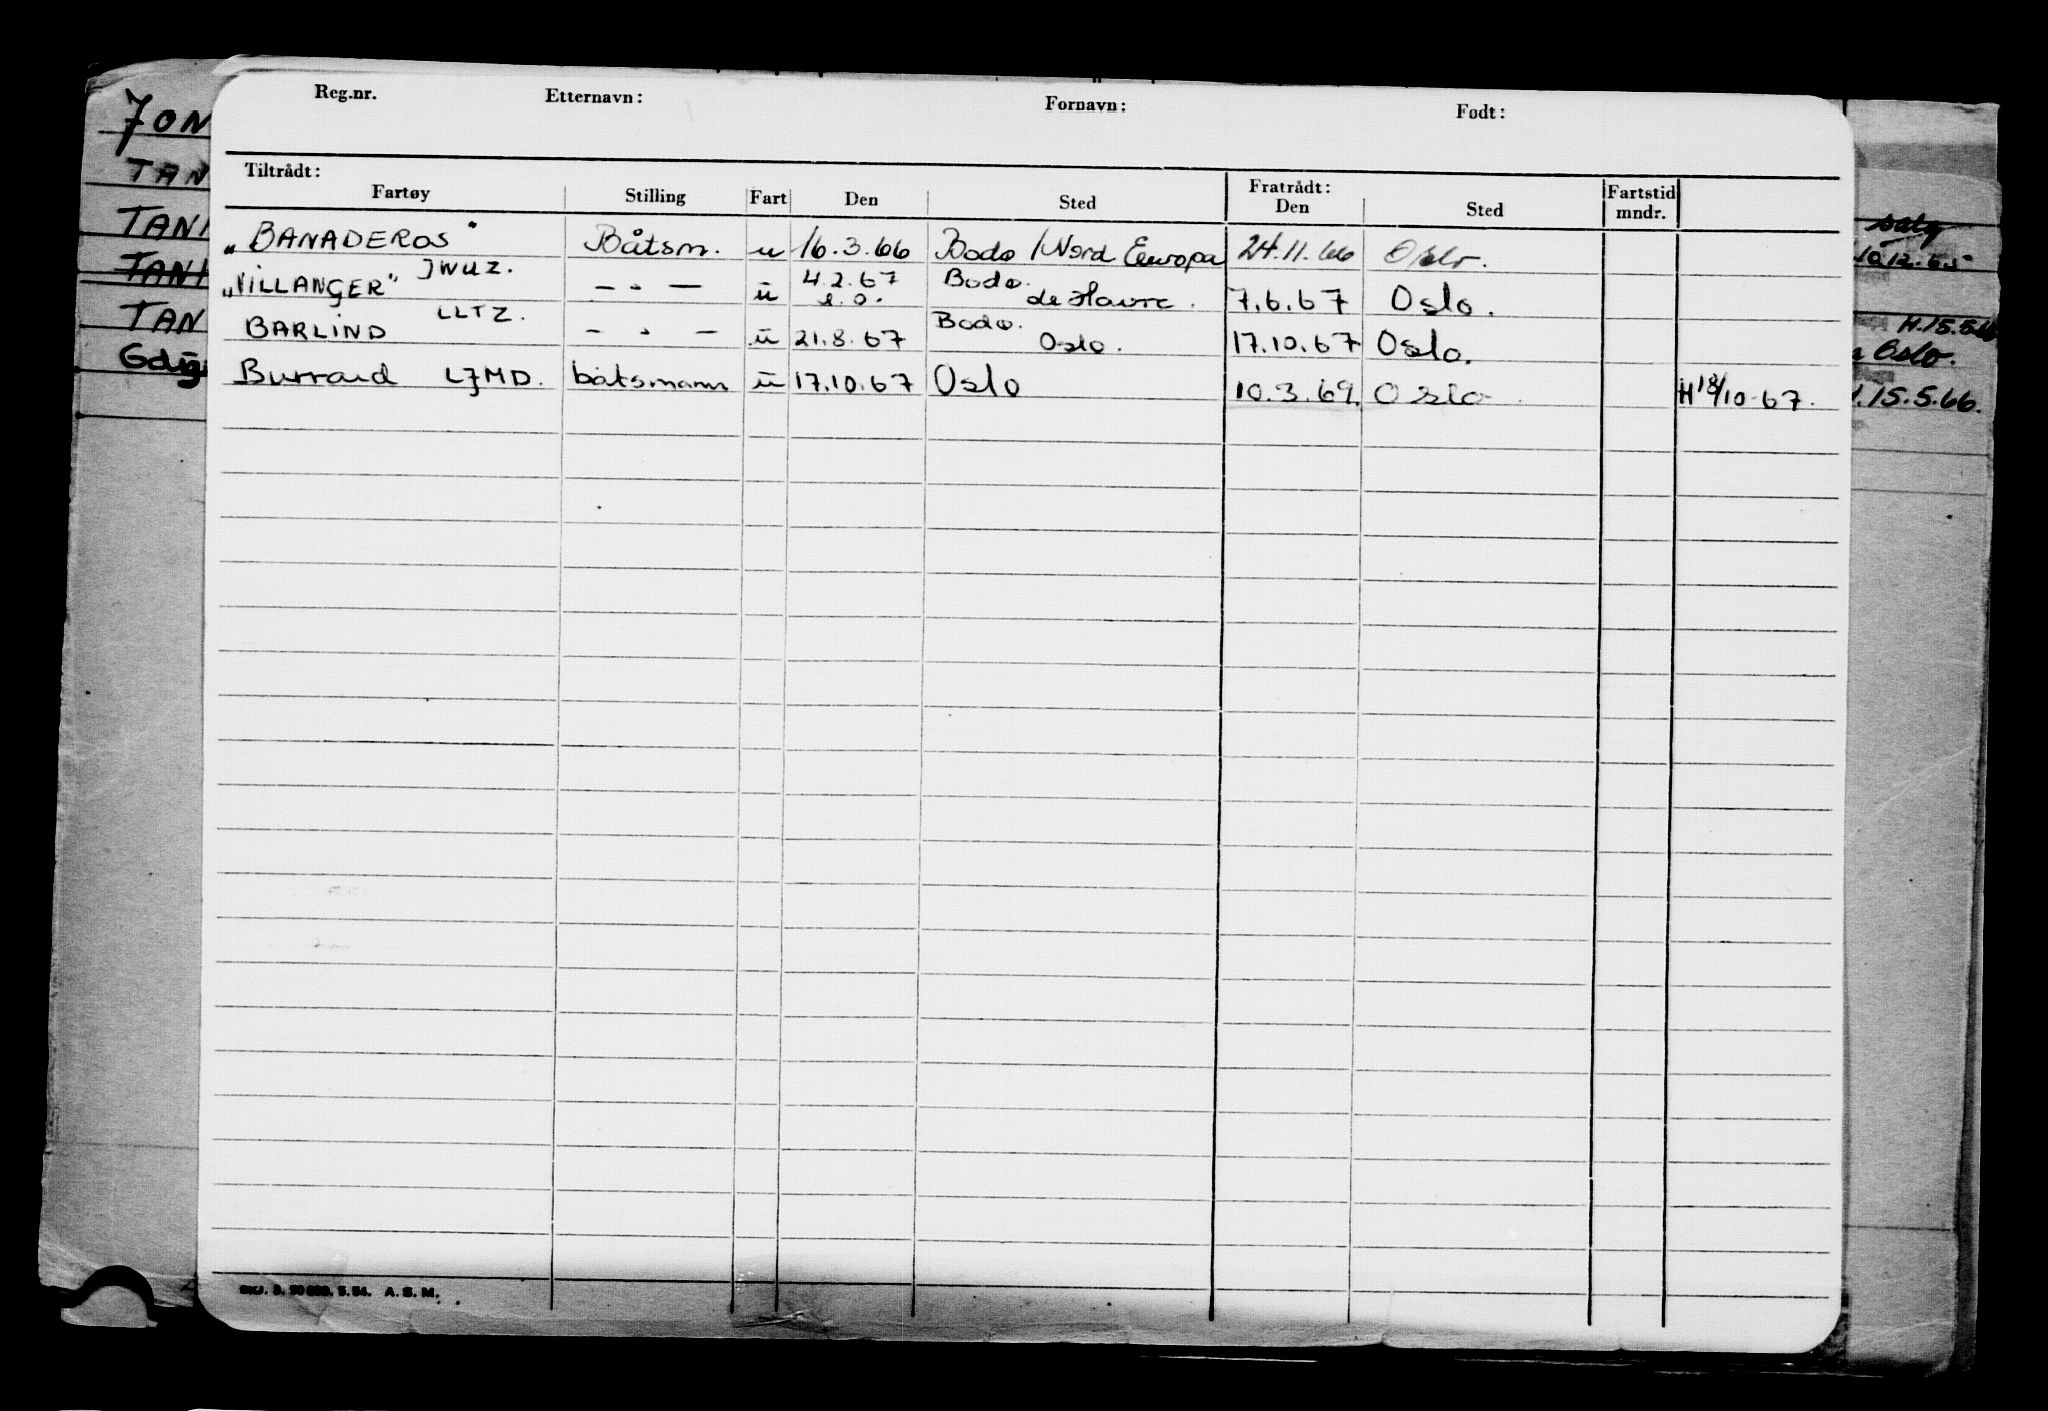 Reg.nr. Etternavn: Fornavn: Født:
Tiltrådt: Fratrådt:
Fartøy Stilling Fart Den Sted Den Sted Fartstid mndr.
„BANADEROS" Båtsm. u 16.3.66 Bodø / Nord Europa 24.11.66 Oslo.
JWUZ.
„VILLANGER" — " — ū 4.2.67 Bodø. le Havre. 7.6.67 Oslo.
LLTZ.
BARLIND — " — ū 21.8.67 Bodø. Oslo. 17.10.67 Oslo.
Burrard LJMD. båtsmann ū 17.10.67 Oslo 10.3.69. Oslo H18/10-67.
A.S.M.
JON
TAN
TANI
TANI
TAN
Gdy
salg
10.12.65
H.15.5.66
Oslo.
.15.5.66.